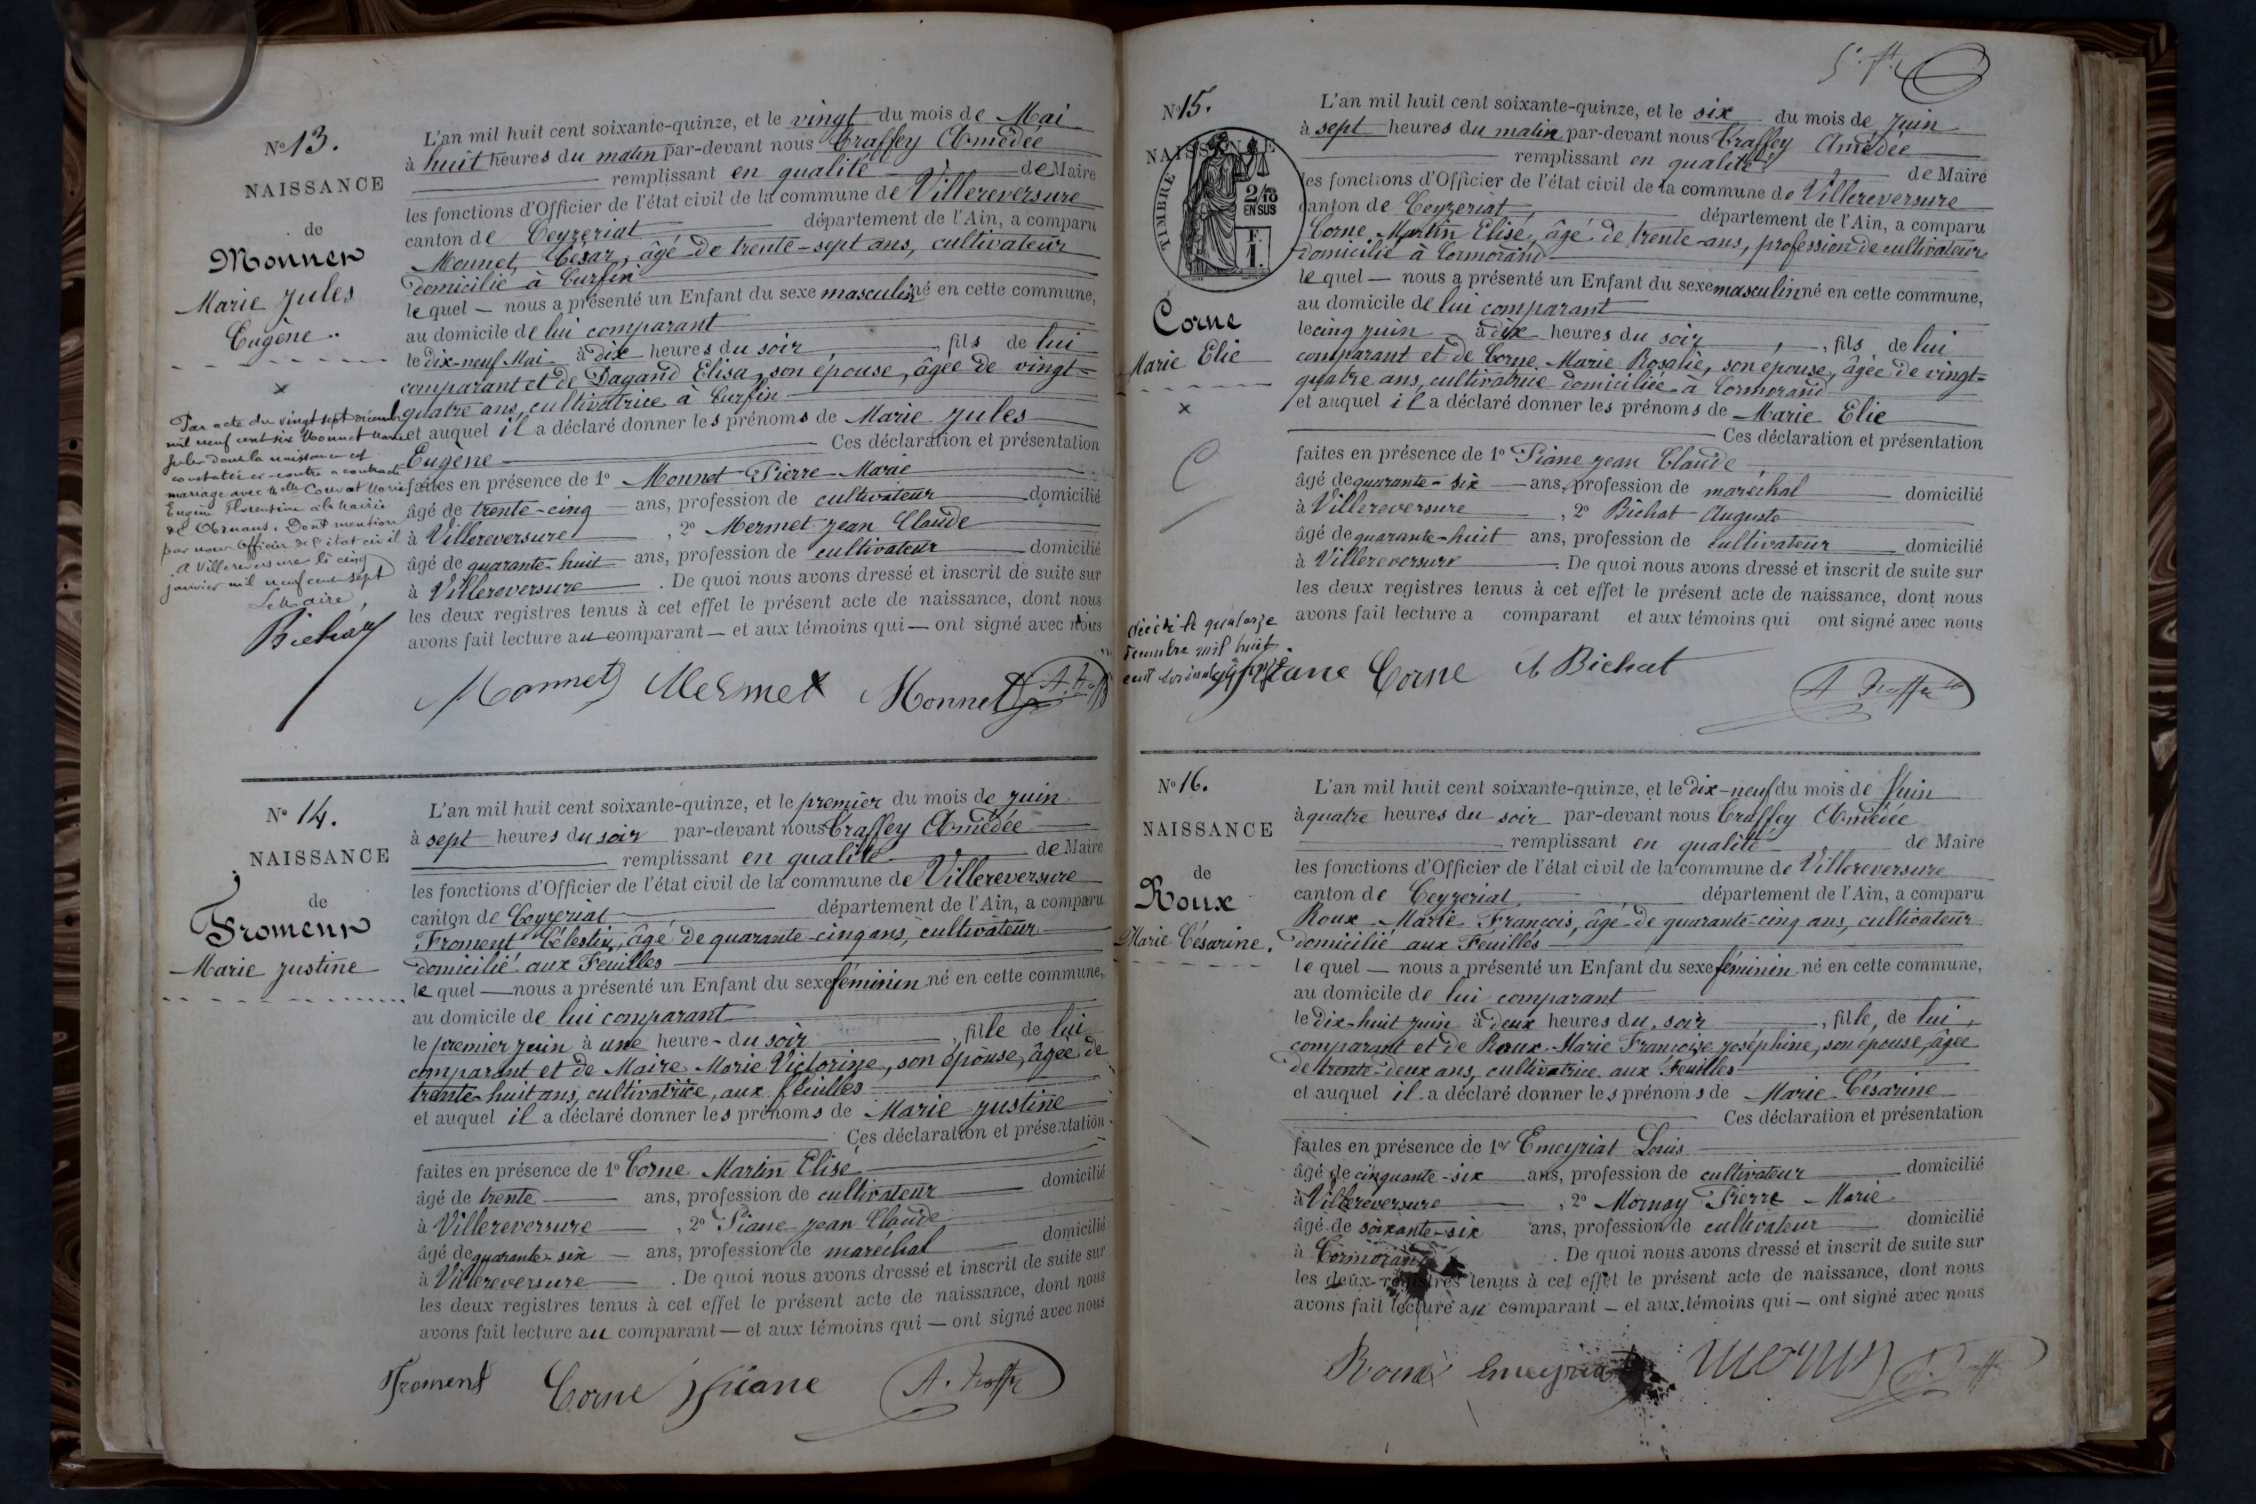 N° 13.
NAISSANCE
de
Monnet
Marie Jules
Eugène
Par acte du vingt sept décembre
mil neuf cent six Monnet Marie
Jules dont la naissance est
constatée ci-contre a contracté
mariage avec Melle Couvat Marie
Eugénie Florentine à la Mairie
de Dont mention
par nous Officier de l'état civil
à Villereversure le cinq
janvier mil neuf cent sept
Le Maire,
Bichat
L'an mil huit cent soixante-quinze, et le vingt du mois de Mai
à huit heures du matin par-devant nous Traffey Amédée
remplissant en qualité de Maire
les fonctions d'Officier de l'état civil de la commune de Villereversure
canton de Ceyzeriat département de l'Ain, a comparu
Monnet, César, âgé de trente-sept ans, cultivateur
domicilié à Turfin
le quel — nous a présenté un Enfant du sexe masculin né en cette commune,
au domicile de lui comparant
le dix-neuf Mai à dix heures du soir, fils de lui
comparant et de Dagand Elisa, son épouse, âgée de vingt-
quatre ans, cultivatrice à Turfin
et auquel il a déclaré donner les prénoms de Marie Jules
Eugène Ces déclaration et présentation
faites en présence de 1° Monnet Pierre-Marie
âgé de trente-cinq ans, profession de cultivateur domicilié
à Villereversure, 2° Mermet Jean Claude
âgé de quarante-huit ans, profession de cultivateur domicilié
à Villereversure. De quoi nous avons dressé et inscrit de suite sur
les deux registres tenus à cet effet le présent acte de naissance, dont nous
avons fait lecture au comparant — et aux témoins qui — ont signé avec nous
Monnet Mermet Monnet
N° 14.
NAISSANCE
de
Froment
Marie Justine
L'an mil huit cent soixante-quinze, et le premier du mois de Juin
à sept heures du soir par-devant nous Traffey Amédée
remplissant en qualité de Maire
les fonctions d'Officier de l'état civil de la commune de Villereversure
canton de Ceyzeriat département de l'Ain, a comparu
Froment Célestin, âgé de quarante-cinq ans, cultivateur
domicilié aux Feuilles
le quel — nous a présenté un Enfant du sexe féminin né en cette commune,
au domicile de lui comparant
le premier Juin à une heure - du soir, fille de lui
comparant et de Maire Marie Victorine, son épouse, âgée de
trente-huit ans, cultivatrice, aux feuilles
et auquel il a déclaré donner les prénoms de Marie Justine
Ces déclaration et présentation
faites en présence de 1° Corne Martin Elisé
âgé de trente ans, profession de cultivateur domicilié
à Villereversure, 2° Piane Jean Claude
âgé de quarante-six — ans, profession de maréchal domicilié
à Villereversure. De quoi nous avons dressé et inscrit de suite sur
les deux registres tenus à cet effet le présent acte de naissance, dont nous
avons fait lecture au comparant — et aux témoins qui — ont signé avec nous
Froment Corne Piane A. Traffey
N° 15.
NAISSANCE
TIMBRE
2/10
EN SUS
F.
1.
Corne
Marie Elie
décédé le quatorze
mil huit
cent
L'an mil huit cent soixante-quinze, et le six du mois de Juin
à sept heures du matin par-devant nous Traffey Amédée
remplissant en qualité de Maire
les fonctions d'Officier de l'état civil de la commune de Villereversure
canton de Ceyzeriat département de l'Ain, a comparu
Corne Martin Elisé, âgé de trente-ans, profession de cultivateur
domicilié à Cormorand
le quel — nous a présenté un Enfant du sexe masculin né en cette commune,
au domicile de lui comparant
le cinq Juin à dix heures du soir, fils de lui
comparant et de Corne Marie Rosalie, son épouse, âgée de vingt-
quatre ans, cultivatrice domiciliée à Cormorand
et auquel il a déclaré donner les prénoms de Marie Elie
Ces déclaration et présentation
faites en présence de 1° Piane Jean Claude
âgé de quarante-six — ans, profession de maréchal domicilié
à Villereversure, 2° Bichat Auguste
âgé de quarante-huit ans, profession de cultivateur domicilié
à Villereversure. De quoi nous avons dressé et inscrit de suite sur
les deux registres tenus à cet effet le présent acte de naissance, dont nous
avons fait lecture a comparant et aux témoins qui ont signé avec nous
Piane Corne A Bichat A Traffey
N° 16.
NAISSANCE
de
Roux
Marie Césarine.
L'an mil huit cent soixante-quinze, et le dix-neuf du mois de Juin
à quatre heures du soir par-devant nous Traffey Amédée
remplissant en qualité de Maire
les fonctions d'Officier de l'état civil de la commune de Villereversure
canton de Ceyzeriat département de l'Ain, a comparu
Roux Marie François, âgé de quarante-cinq ans, cultivateur
domicilié aux Feuilles
le quel — nous a présenté un Enfant du sexe féminin né en cette commune,
au domicile de lui comparant
le dix-huit Juin à deux heures du soir, fille, de lui,
comparant et de Roux Marie Françoise Joséphine, son épouse, âgée
de trente-deux ans, cultivatrice aux Feuilles
et auquel il a déclaré donner les prénoms de Marie Césarine
Ces déclaration et présentation
faites en présence de 1° Emeyriat Louis
âgé de cinquante-six ans, profession de cultivateur domicilié
à Villereversure, 2° Mornay Pierre-Marie
âgé de soixante-six ans, profession de cultivateur domicilié
à Cormorand. De quoi nous avons dressé et inscrit de suite sur
les deux registres tenus à cet effet le présent acte de naissance, dont nous
avons fait lecture au comparant — et aux témoins qui — ont signé avec nous
Roux Emeyriat